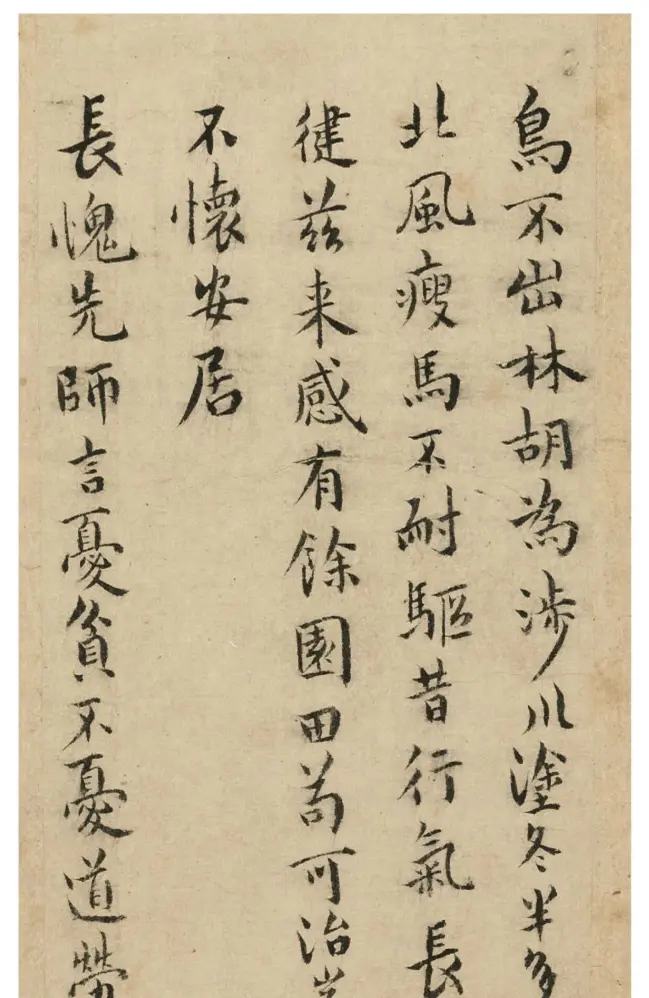 鳥不出林胡為涉川塗冬半多
北風瘦馬不耐驅昔行氣長
健茲来感有餘園田苟可治
不懷安居
長愧先師言憂貧不憂道勞